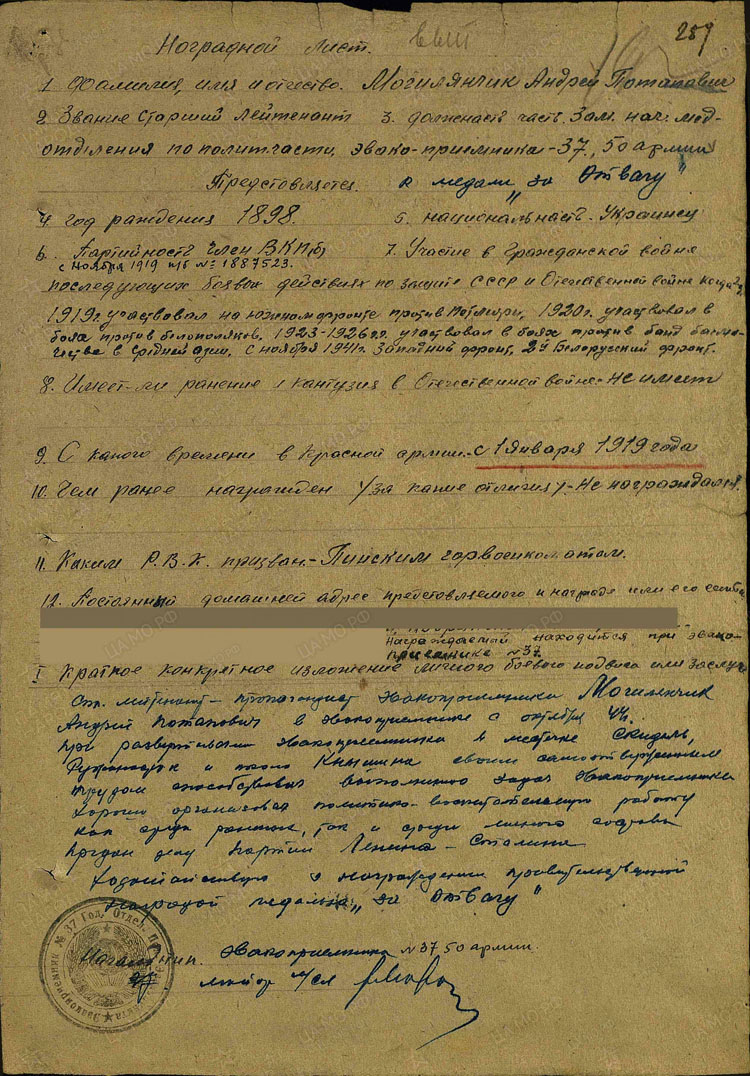 Наградной лист.
259
1. Фамилия, имя и отчество. Могилянчик Андрей Потапович
2. Звание Старший лейтенант 3. должность часть. Зам. нач. мед-
отделения по политчасти, эвако-приемника-37, 50 армии
Представляется. к медали „за Отвагу"
4. год раждения 1898. 5. национальность. Украинец
6. Партийность член ВКП(б) 7. Участие в Гражданской войне
с Ноября 1919 п/б № 1887523.
последующих боевых действиях по защите СССР и Отечественной войне
1919г участвовал на южном фронте против Петлюры, 1920г. участвовал в
боях против белополяков. 1923-1926гг. участвовал в боях против банд
в Средней азии. С ноября 1941г. Западный фронт, 2й Белорусский фронт.
8. Имеет-ли ранение и кантузия в Отечественной войне- Не имеет
9. С какого времени в Красной армии.- с 1 января 1919 года
10. Чем ранее награжден (за какие отличия)- Не награждался.
11. Каким Р.В.К. призван.- Пинским горвоенкоматом.
12. Постоянный домашней адрес представляемого к награде или его семьи
Награждаемой находится при эвако-
приемнике №37.
I Краткое конкретное изложение личного боевого подвига или заслуг
Ст. лейтенант- пропагандист Эвакоприемника Могилянчик
Андрей Потапович в эвакоприемнике с октября 44г.
При развертывании эвакоприемника в местечке Скидель,
и Кнышина своим самоотверженным
трудом способствовал выполнению задач эвакоприемника
Хорошо организовал политико-воспитательную работу
как среди раненых, так и среди личного состава
Предан делу партии Ленина - Сталина
Ходатайствую о награждении правительственной
наградой медалью „за Отвагу"
Начальник эвакоприемника №37 50 армии.
майор м/сл
Эвакоприемник № 37 Год. Отдел.